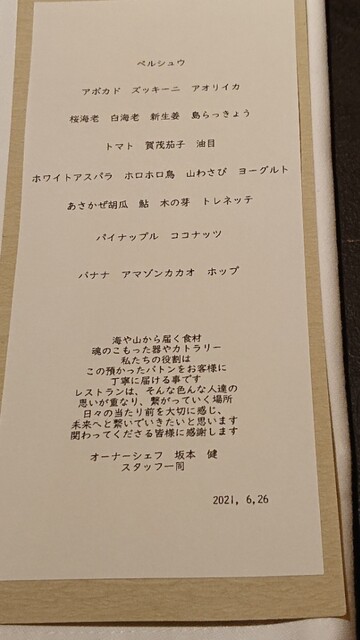 ペルシュウ
アボカド　ズッキーニ　アオリイカ
桜海老　白海老　新生姜　島らっきょう
トマト　賀茂茄子　油目
ホワイトアスパラ　ホロホロ鳥　山わさび　ヨーグルト
あさかぜ胡瓜　鮎　木の芽　トレネッテ
パイナップル　ココナッツ
バナナ　アマゾンカカオ　ホップ
海や山から届く食材
魂のこもった器やカトラリー
私たちの役割は
この預かったバトンをお客様に
丁寧に届ける事です
レストランは、そんな色んな人達の
思いが重なり、繋がっていく場所
日々の当たり前を大切に感じ、
未来へと繋いでいきたいと思います
関わってくださる皆様に感謝します
オーナーシェフ　坂本　健
スタッフ一同
2021, 6,26